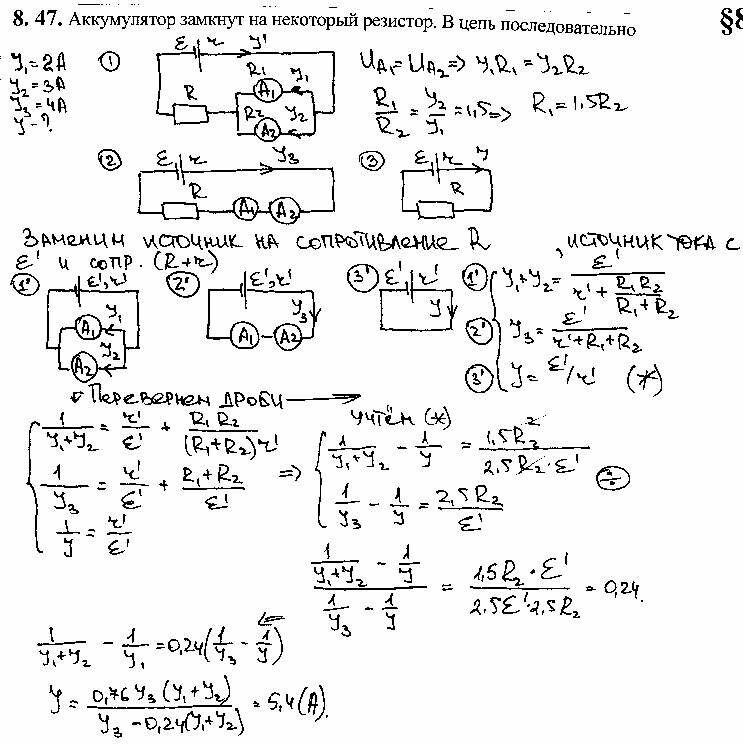 8. 47. Аккумулятор замкнут на некоторый резистор. В цепь последовательно
§8
У₁ = 2А
У₂ = 3А
У₃ = 4А
У - ?
① ε r У' R R₁ A₁ У₁ R₂ A₂ У₂
U_A₁ = U_A₂ => У₁R₁ = У₂R₂
R₁/R₂ = У₂/У₁ = 1,5 => R₁ = 1,5R₂
② ε r У₃ R A₁ A₂
③ ε r У R
Заменим источник на сопротивление R, источник тока с
ε' и сопр. (R+r)
1' ε', r' A₁ У₁ A₂ У₂
2' ε', r' У₃ A₁ A₂
3' ε' r' У
1' У₁+У₂ = ε'/(r' + R₁R₂/(R₁+R₂))
2' У₃ = ε'/(r'+R₁+R₂)
3' У = ε'/r' (*)
Перевернем дроби
1/(У₁+У₂) = r'/ε' + R₁R₂/((R₁+R₂)r')
1/У₃ = r'/ε' + (R₁+R₂)/ε'
1/У = r'/ε'
=>
учтём (*)
1/(У₁+У₂) - 1/У = 1,5R₂²/(2,5R₂·ε')
1/У₃ - 1/У = 2,5R₂/ε'
(1/(У₁+У₂) - 1/У)/(1/У₃ - 1/У) = 1,5R₂·ε'/(2,5ε'·2,5R₂) = 0,24.
1/(У₁+У₂) - 1/У₁ = 0,24(1/У₃ - 1/У)
У = 0,76У₃(У₁+У₂)/(У₃ - 0,24(У₁+У₂)) = 5,4(А).